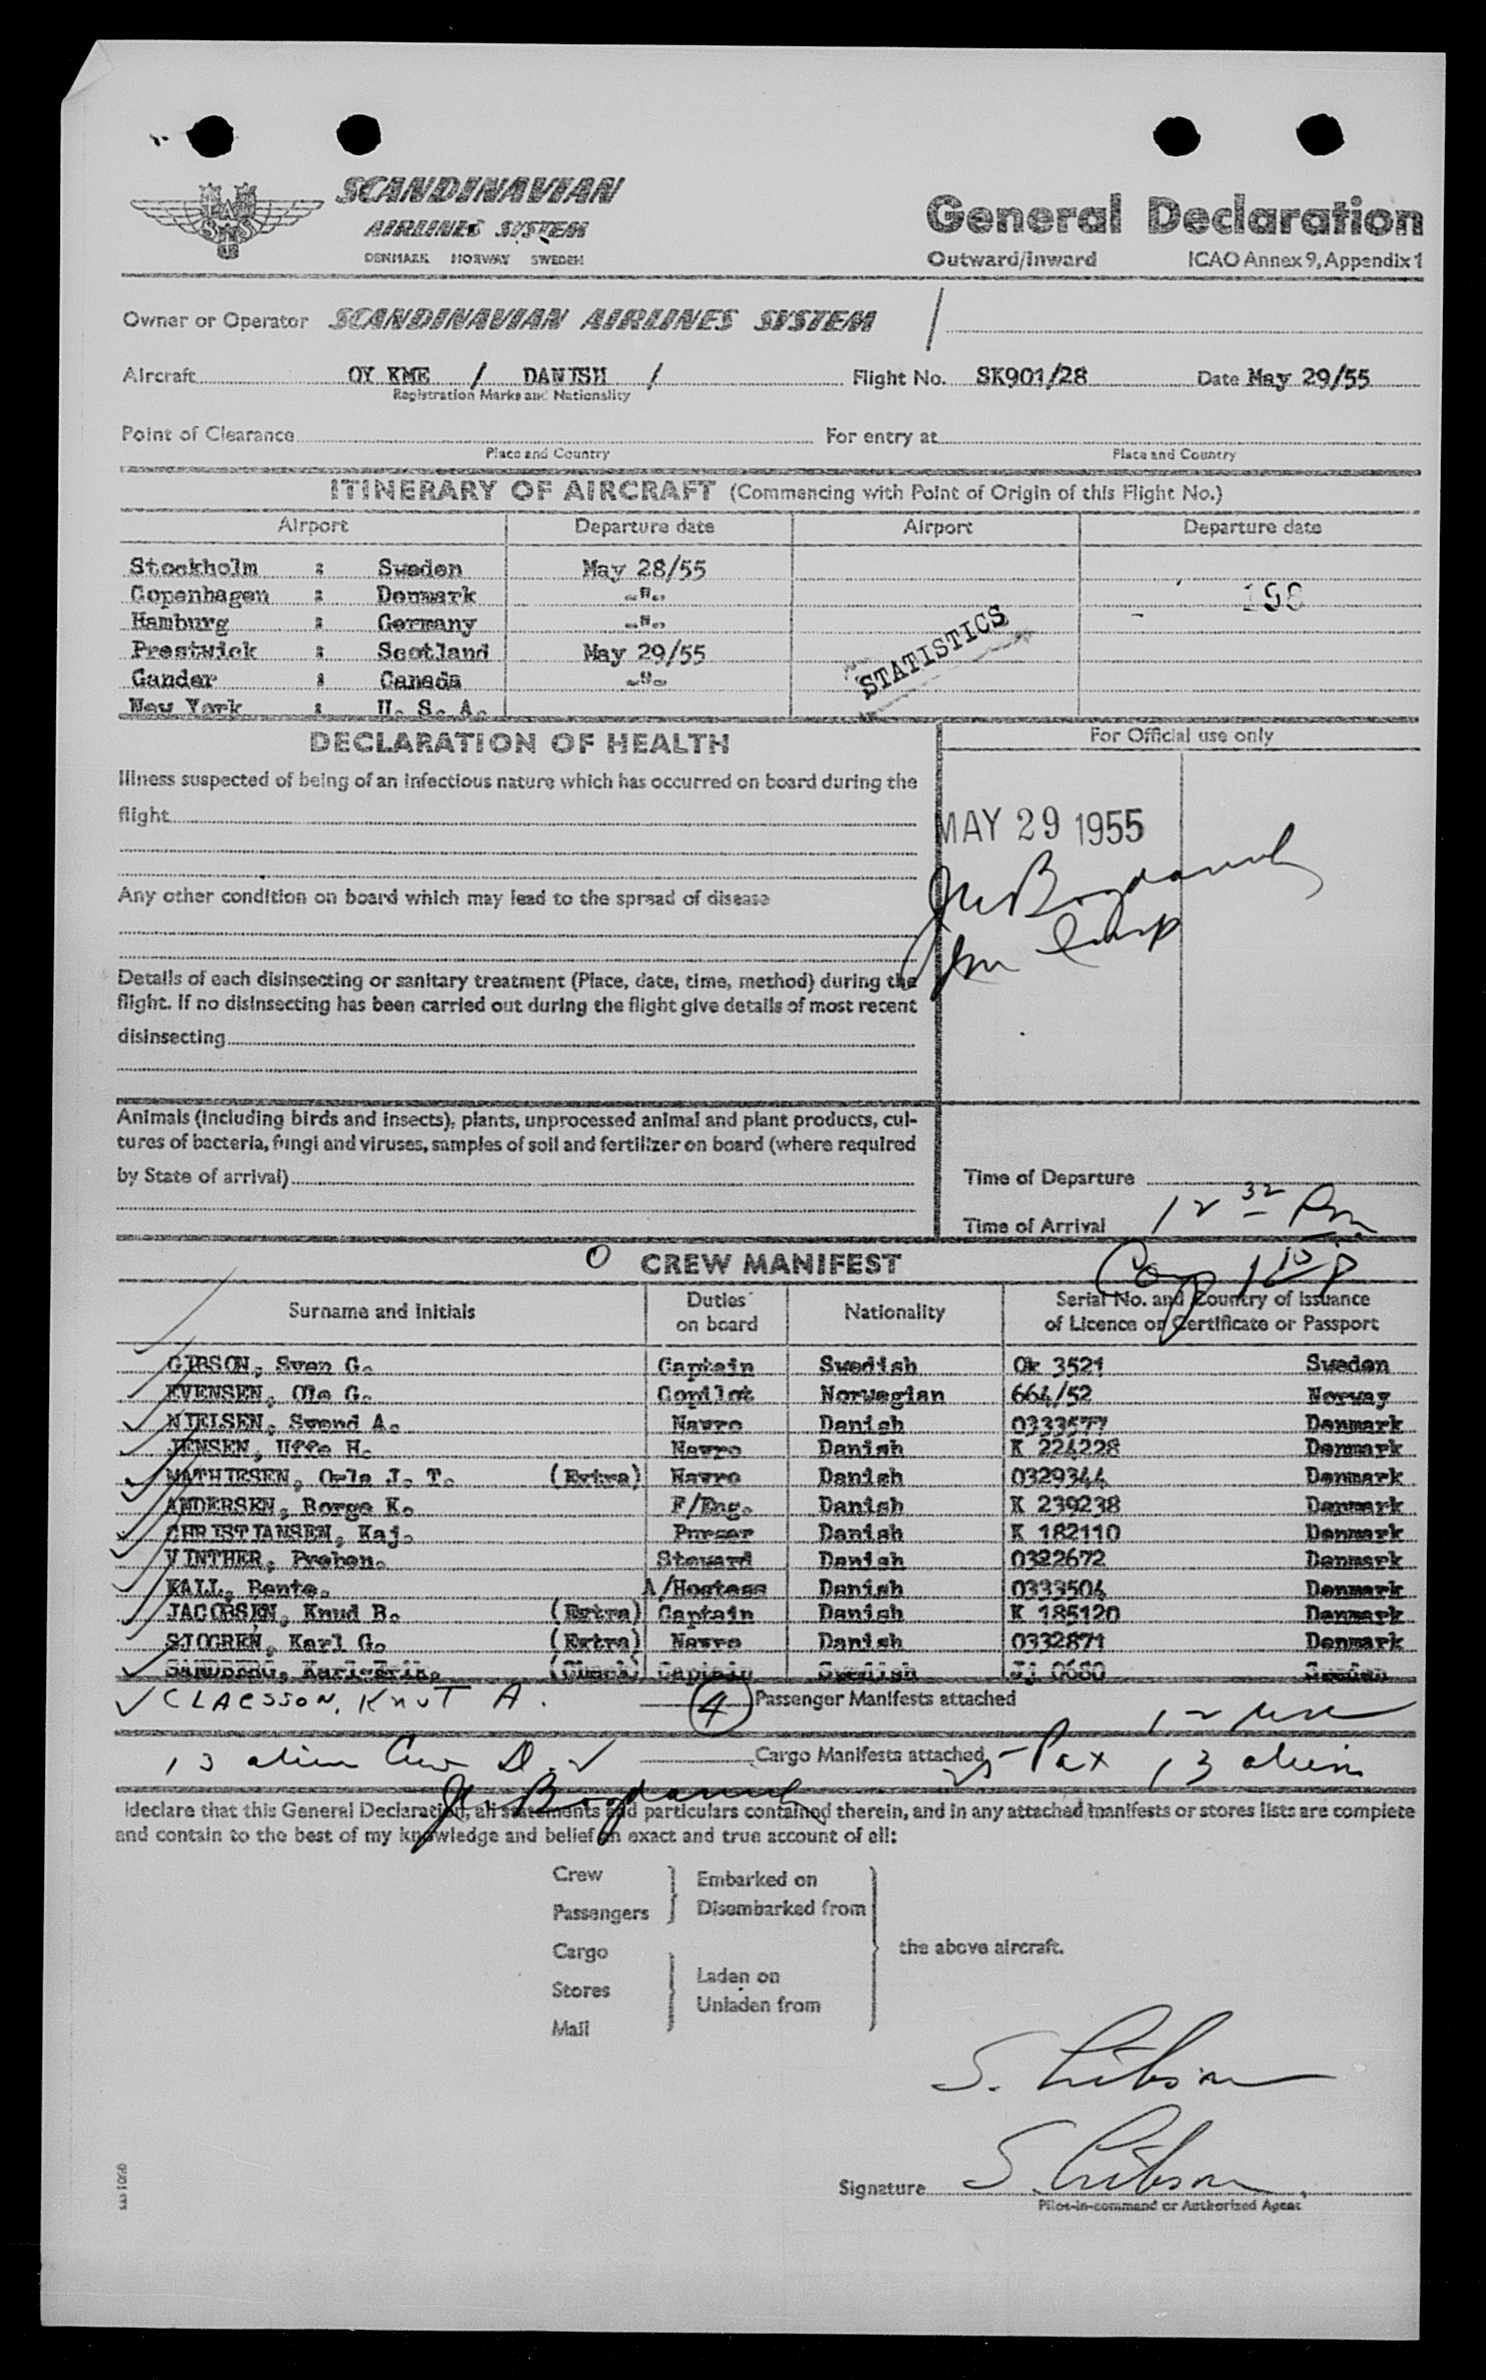 SCANDINAVIAN
AIRLINES SYSTEM
DENMARK NORWAY SWEDEN
General Declaration
Outward/Inward ICAO Annex 9, Appendix 1
Owner or Operator SCANDINAVIAN AIRLINES SYSTEM
Aircraft OY KME / DANISH / Flight No. SK901/28 Date May 29/55
Registration Marks and Nationality
Point of Clearance For entry at
Place and Country Place and Country
ITINERARY OF AIRCRAFT (Commencing with Point of Origin of this Flight No.)
Airport Departure date Airport Departure date
Stockholm : Sweden May 28/55
Copenhagen : Denmark -"-
Hamburg : Germany -"-
Prestwick : Scotland May 29/55
Gander : Canada -"-
New York : U. S. A.
STATISTICS
DECLARATION OF HEALTH
For Official use only
Illness suspected of being of an infectious nature which has occurred on board during the
flight
MAY 29 1955
Any other condition on board which may lead to the spread of disease
Details of each disinsecting or sanitary treatment (Place, date, time, method) during the
flight. If no disinsecting has been carried out during the flight give details of most recent
disinsecting
Animals (including birds and insects), plants, unprocessed animal and plant products, cul-
tures of bacteria, fungi and viruses, samples of soil and fertilizer on board (where required
by State of arrival)
Time of Departure
Time of Arrival 12 32 Pm
O CREW MANIFEST
Surname and Initials Duties on board Nationality Serial No. and Country of Issuance of Licence or Certificate or Passport
GIBSON, Sven G. Captain Swedish Ok 3521 Sweden
EVENSEN, Ole G. Copilot Norwegian 664/52 Norway
NIELSEN, Svend A. Navro Danish 0333577 Denmark
JENSEN, Uffe H. Navro Danish K 224228 Denmark
MATHIESEN, Orla J. T. (Extra) Navro Danish 0329344 Denmark
ANDERSEN, Borge K. F/Eng. Danish K 239238 Denmark
CHRISTIANSEN, Kaj. Purser Danish K 182110 Denmark
VINTHER, Preben. Steward Danish 0322672 Denmark
KALL, Bente. A/Hostess Danish 0333504 Denmark
JACOBSEN, Knud B. (Extra) Captain Danish K 185120 Denmark
SJOGREN, Karl G. (Extra) Navro Danish 0332871 Denmark
SANDBERG, Karl-Erik. (Check) Captain Swedish Jj 0680 Sweden
CLAESSON, KNUT A. 4 Passenger Manifests attached
13 alien Crew Cargo Manifests attached Pax 13 alien
I declare that this General Declaration, all statements and particulars contained therein, and in any attached manifests or stores lists are complete
and contain to the best of my knowledge and belief an exact and true account of all:
Crew
Passengers
Embarked on
Disembarked from
Cargo
Stores
Mail
Laden on
Unladen from
the above aircraft.
S. Gibson
Signature S. Gibson
Pilot-in-command or Authorized Agent